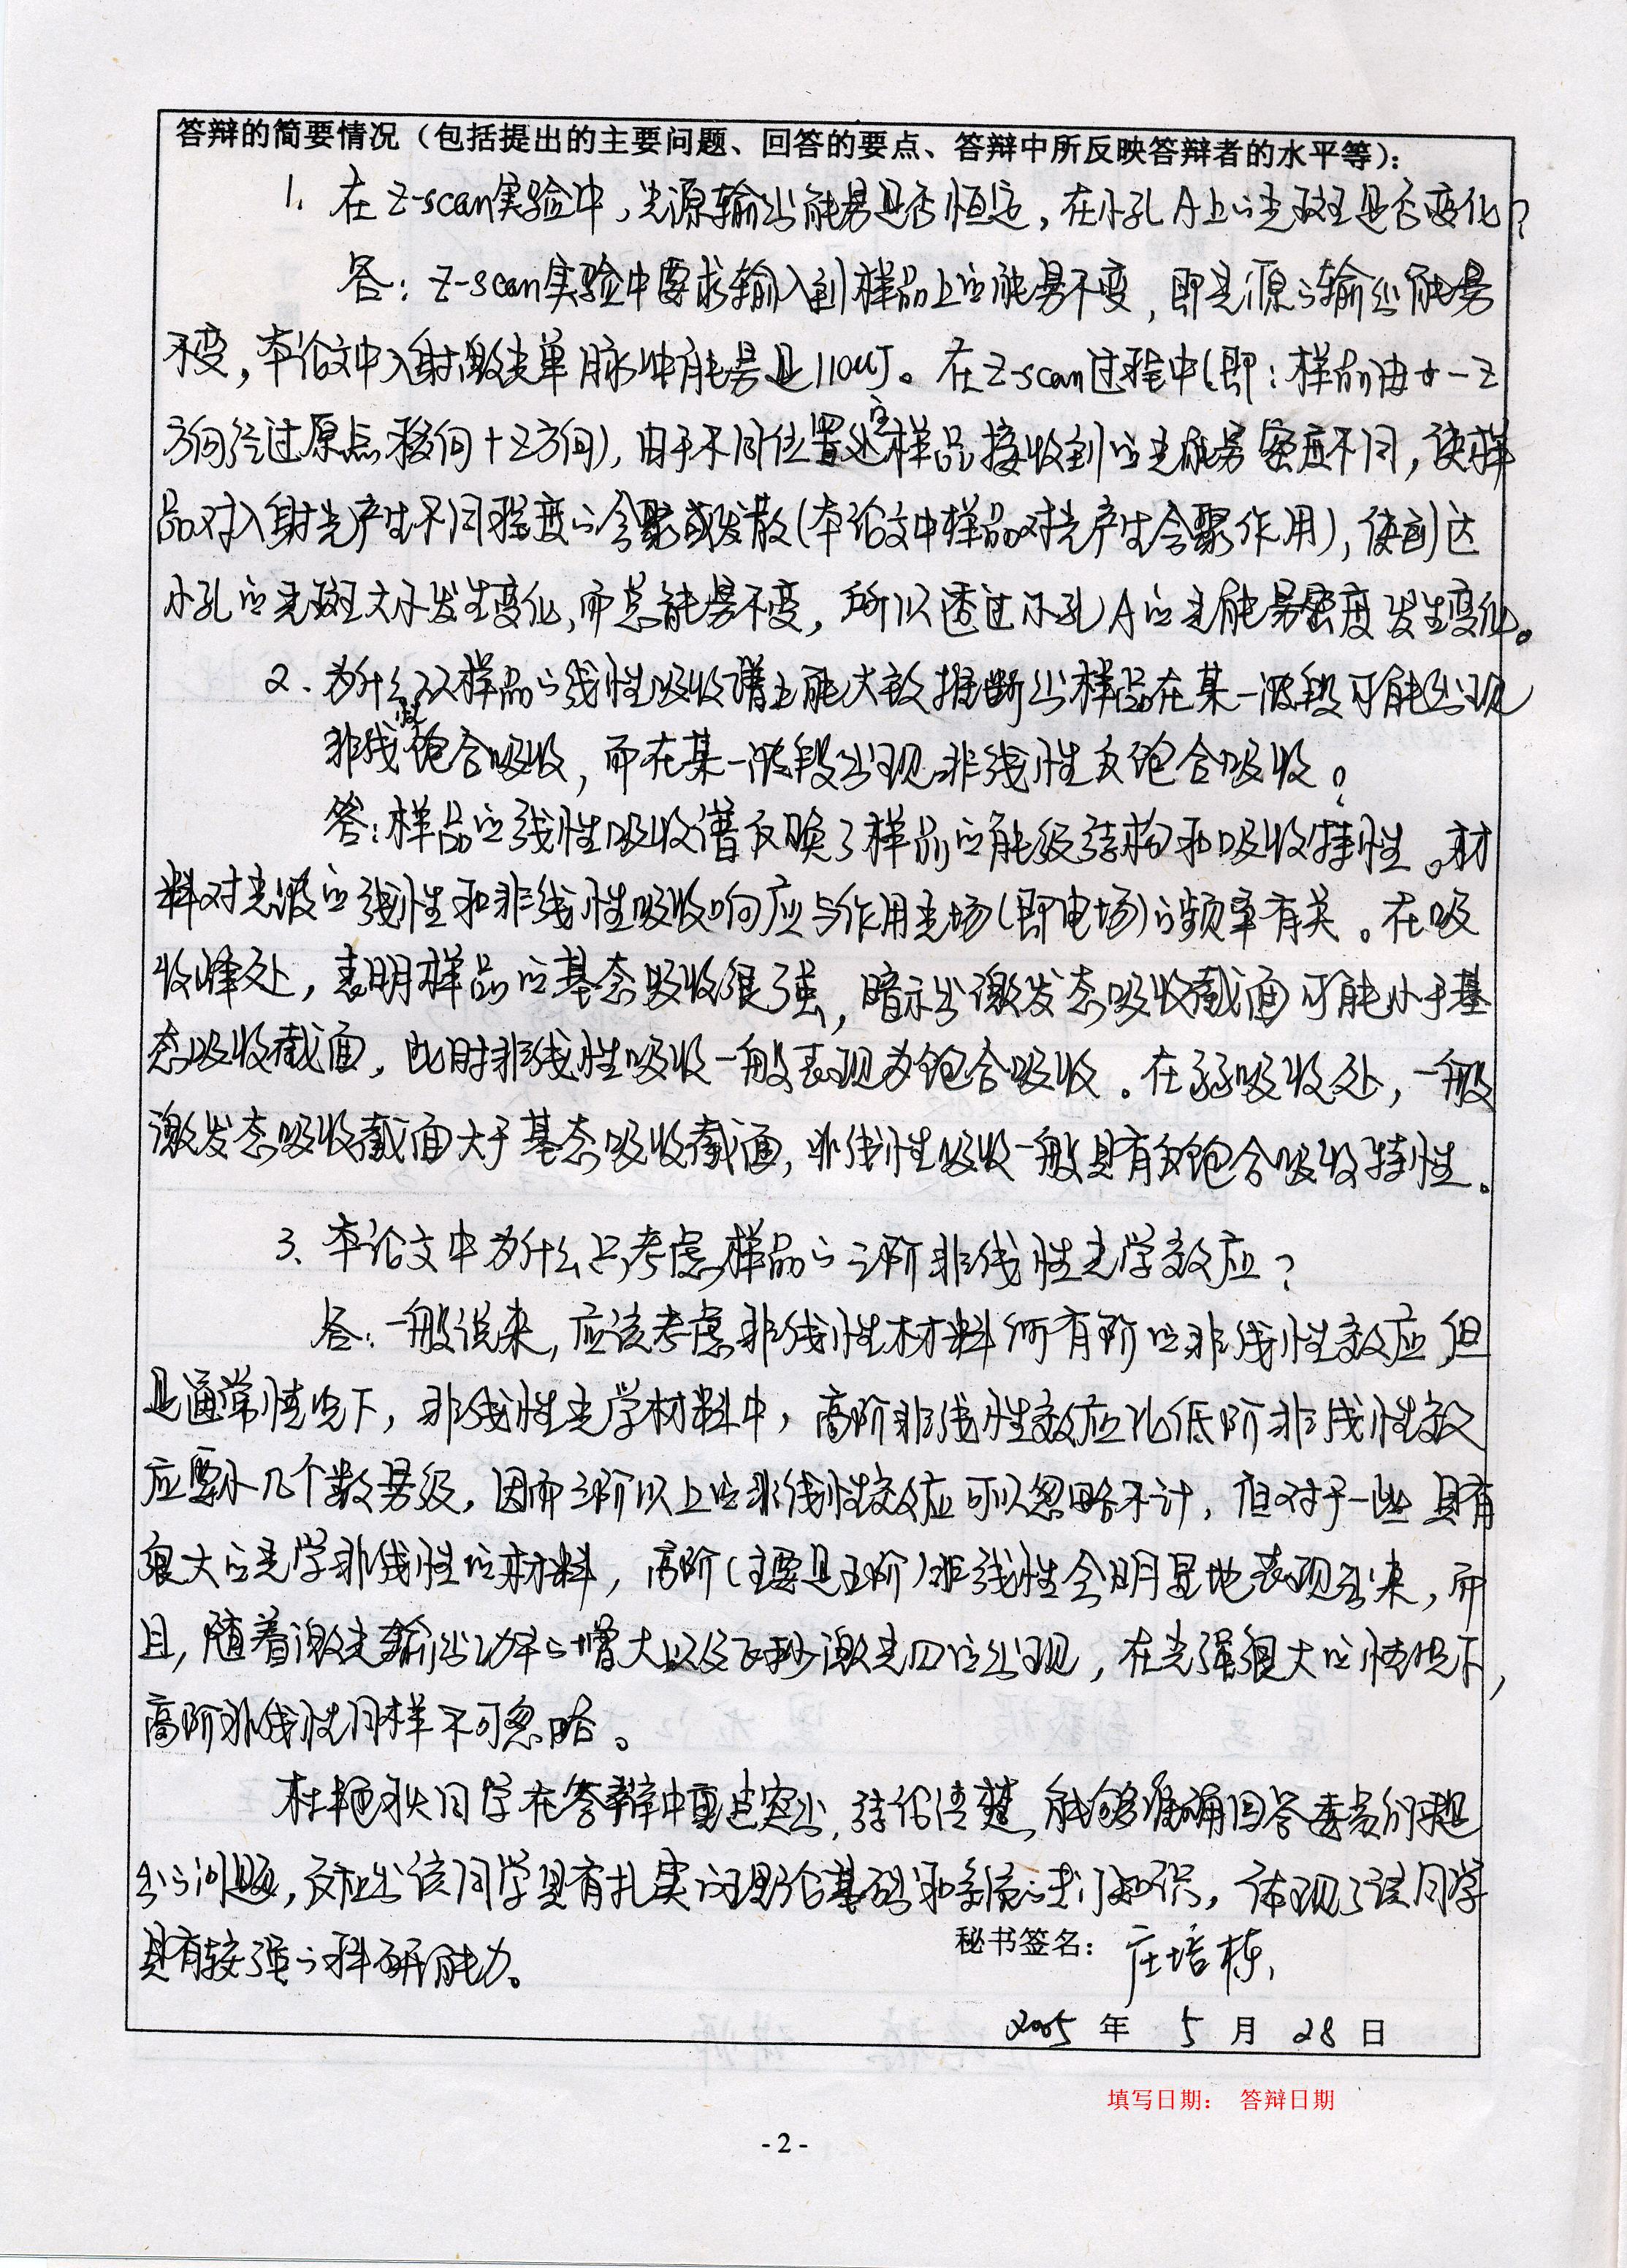 答辩的简要情况（包括提出的主要问题、回答的要点、答辩中所反映答辩者的水平等）：
1. 在Z-scan实验中，光源输出能量是否恒定，在小孔A上的光斑是否变化？
答：Z-scan实验中要求输入到样品上的能量不变，即光源的输出能量
不变，本论文中入射激光单脉冲能量是110μJ。在Z-scan过程中（即：样品由-Z
方向经过原点移向+Z方向），由于不同位置处样品接收到的光能量密度不同，使样
品对入射光产生不同程度的会聚或发散（本论文中样品对光产生会聚作用），使到达
小孔的光斑大小发生变化，而总能量不变，所以透过小孔A的光能量密度发生变化。
2. 为什么从样品的线性吸收谱上能大致推断出样品在某一波段可能出现
非线性饱合吸收，而在某一波段出现非线性反饱合吸收？
答：样品的线性吸收谱反映了样品的能级结构和吸收特性。材
料对光波的线性和非线性吸收响应与作用光场（即电场）的频率有关。在吸
收峰处，表明样品的基态吸收很强，暗示出激发态吸收截面可能小于基
态吸收截面，此时非线性吸收一般表现为饱合吸收。在弱吸收处，一般
激发态吸收截面大于基态吸收截面，非线性吸收一般具有反饱合吸收特性。
3. 本论文中为什么只考虑样品的三阶非线性光学效应？
答：一般说来，应该考虑非线性材料所有阶的非线性效应，但
是通常情况下，非线性光学材料中，高阶非线性效应比低阶非线性效
应要小几个数量级，因而三阶以上的非线性效应可以忽略不计，但对于一些具有
很大的光学非线性的材料，高阶（主要是五阶）非线性会明显地表现出来，而
且，随着激光输出功率的增大以及飞秒激光的出现，在光强很大的情况下，
高阶非线性同样不可忽略。
杜艳秋同学在答辩中重点突出，结论清楚，能够准确回答委员们提
出的问题，反应出该同学具有扎实的理论基础和系统的专门知识，体现了该同学
具有较强的科研能力。
秘书签名：庄培栋
2005 年 5 月 28 日
填写日期： 答辩日期
-2-